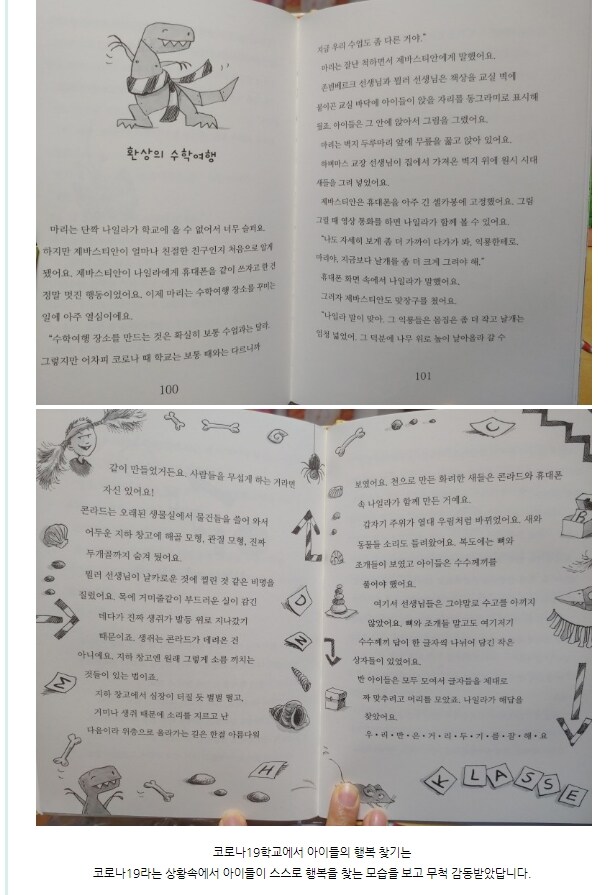 환상의 수학여행
마리는 단짝 나일라가 학교에 올 수 없어서 너무 슬퍼요.
하지만 제바스티안이 얼마나 친절한 친구인지 처음으로 알게
됐어요. 제바스티안이 나일라에게 휴대폰을 같이 쓰자고 한 건
정말 멋진 행동이었어요. 이제 마리는 수학여행 장소를 꾸미는
일에 아주 열심이에요.
"수학여행 장소를 만드는 것은 확실히 보통 수업과는 달라.
그렇지만 어차피 코로나 때 학교는 보통 때와는 다르니까
100
지금 우리 수업도 좀 다른 거야."
마리는 잘난 척하면서 제바스티안에게 말했어요.
선생님과 뮐러 선생님은 책상을 교실 벽에
붙이곤 교실 바닥에 아이들이 앉을 자리를 동그라미로 표시해
줬죠. 아이들은 그 안에 앉아서 그림을 그렸어요.
마리는 벽지 두루마리 앞에 무릎을 꿇고 앉아 있어요.
교장 선생님이 집에서 가져온 벽지 위에 원시 시대
새들을 그려 넣었어요.
제바스티안은 휴대폰을 아주 긴 셀카봉에 고정했어요. 그림
그릴 때 영상 통화를 하면 나일라가 함께 볼 수 있어요.
"나도 자세히 보게 좀 더 가까이 다가가 봐. 익룡한테로.
마리야, 지금보다 날개를 좀 더 크게 그려야 해."
휴대폰 화면 속에서 나일라가 말했어요.
그러자 제바스티안도 맞장구를 쳤어요.
"나일라 말이 맞아. 그 익룡들은 몸집은 좀 더 작고 날개는
엄청 넓었어. 그 덕분에 나무 위로 높이 날아올라 갈 수
101
같이 만들었거든요. 사람들을 무섭게 하는 거라면
자신 있어요!
콘라드는 오래된 생물실에서 물건들을 끌어 와서
어두운 지하 창고에 해골 모형, 관절 모형, 진짜
두개골까지 숨겨 뒀어요.
뮐러 선생님이 날카로운 것에 찔린 것 같은 비명을
질렀어요. 목에 거미줄같이 부드러운 실이 감긴
데다가 진짜 생쥐가 발등 위로 지나갔기
때문이죠. 생쥐는 콘라드가 데려온 건
아니에요. 지하 창고엔 원래 그렇게 소름 끼치는
것들이 있는 법이죠.
지하 창고에서 심장이 터질 듯 벌벌 떨고,
거미나 생쥐 때문에 소리를 지르고 난
다음이라 위층으로 올라가는 길은 한결 아름다워
D
N
M
H
보였어요. 천으로 만든 화려한 새들은 콘라드와 휴대폰
속 나일라가 함께 만든 거예요.
갑자기 주위가 열대 우림처럼 바뀌었어요. 새와
동물들 소리도 들려왔어요. 복도에는 뼈와
조개들이 보였고 아이들은 수수께끼를
풀어야 했어요.
여기서 선생님들은 그야말로 수고를 아끼지
않았어요. 뼈와 조개들 말고도 여기저기
수수께끼 답이 한 글자씩 나뉘어 담긴 작은
상자들이 있었어요.
반 아이들은 모두 모여서 글자들을 제대로
짜 맞추려고 머리를 모았죠. 나일라가 해답을
찾았어요.
우·리·반·은·거·리·두·기·를·잘·해·요
C
KLASSE
코로나19학교에서 아이들의 행복 찾기는
코로나19라는 상황속에서 아이들이 스스로 행복을 찾는 모습을 보고 무척 감동받았답니다.